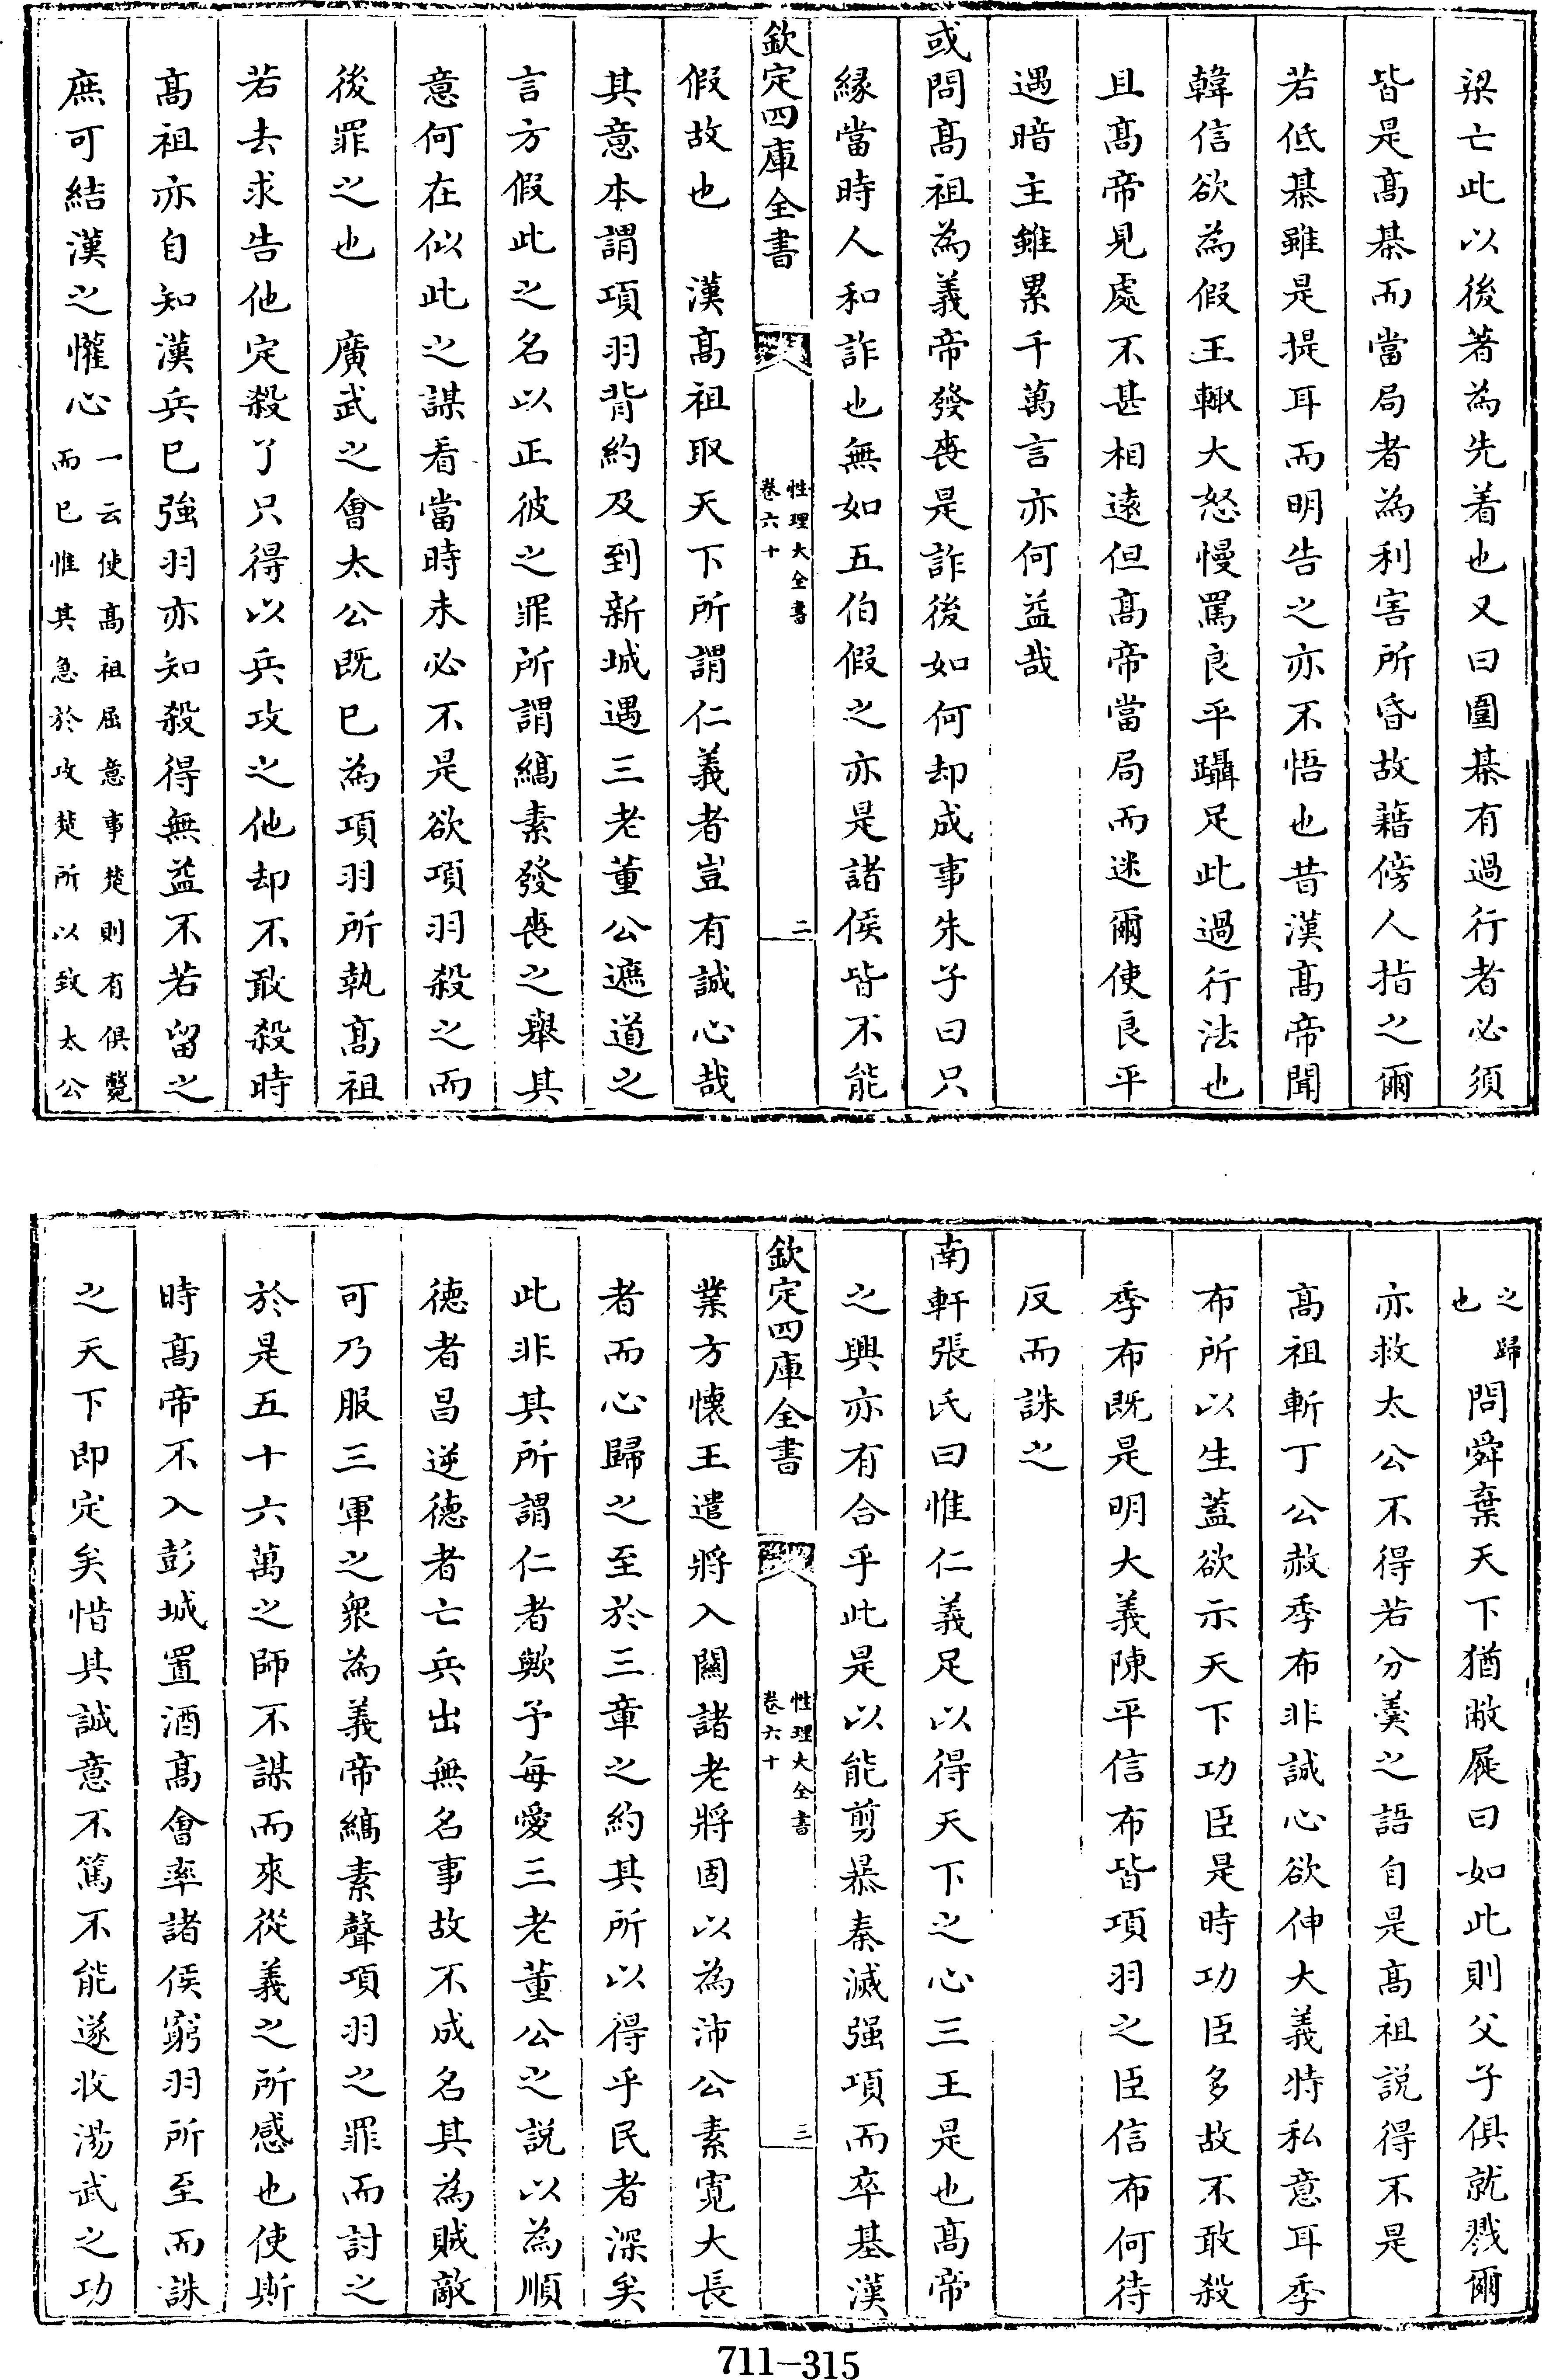 梁亡此以後著為先着也又曰圍棊有過行者必須
皆是髙棊而當局者為利害所昏故藉傍人指之爾
若低棊雖是提耳而明告之亦不悟也昔漢髙帝聞
韓信欲為假王輙大怒慢罵良平躡足此過行法也
且髙帝見處不甚相遠但髙帝當局而迷爾使良平
遇暗主雖累千萬言亦何益哉
或問髙祖為義帝發喪是詐後如何却成事朱子曰只
緣當時人和詐也無如五伯假之亦是諸侯皆不能
欽定四庫全書
性理大全書
卷六十
二
假故也　漢髙祖取天下所謂仁義者豈有誠心哉
其意本謂項羽背約及到新城遇三老董公遮道之
言方假此之名以正彼之罪所謂縞素發喪之舉其
意何在似此之謀看當時未必不是欲項羽殺之而
後罪之也　廣武之會太公既已為項羽所執髙祖
若去求告他定殺了只得以兵攻之他却不敢殺時
髙祖亦自知漢兵已強羽亦知殺得無益不若留之
庶可結漢之懽心
一云使髙祖屈意事楚則有俱斃
而已惟其急於攻楚所以致太公
之歸
也
問舜棄天下猶敝屣曰如此則父子俱就戮爾
亦救太公不得若分羹之語自是髙祖説得不是
髙祖斬丁公赦季布非誠心欲伸大義特私意耳季
布所以生蓋欲示天下功臣是時功臣多故不敢殺
季布既是明大義陳平信布皆項羽之臣信布何待
反而誅之
南軒張氏曰惟仁義足以得天下之心三王是也髙帝
之興亦有合乎此是以能剪暴秦滅强項而卒基漢
欽定四庫全書
性理大全書
卷六十
三
業方懐王遣將入關諸老將固以為沛公素寛大長
者而心歸之至於三章之約其所以得乎民者深矣
此非其所謂仁者歟予每愛三老董公之説以為順
德者昌逆德者亡兵出無名事故不成名其為賊敵
可乃服三軍之衆為義帝縞素聲項羽之罪而討之
於是五十六萬之師不謀而來從義之所感也使斯
時髙帝不入彭城置酒髙會率諸侯窮羽所至而誅
之天下即定矣惜其誠意不篤不能遂收湯武之功
711-315